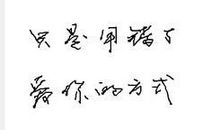 只是用错了
爱你的方式